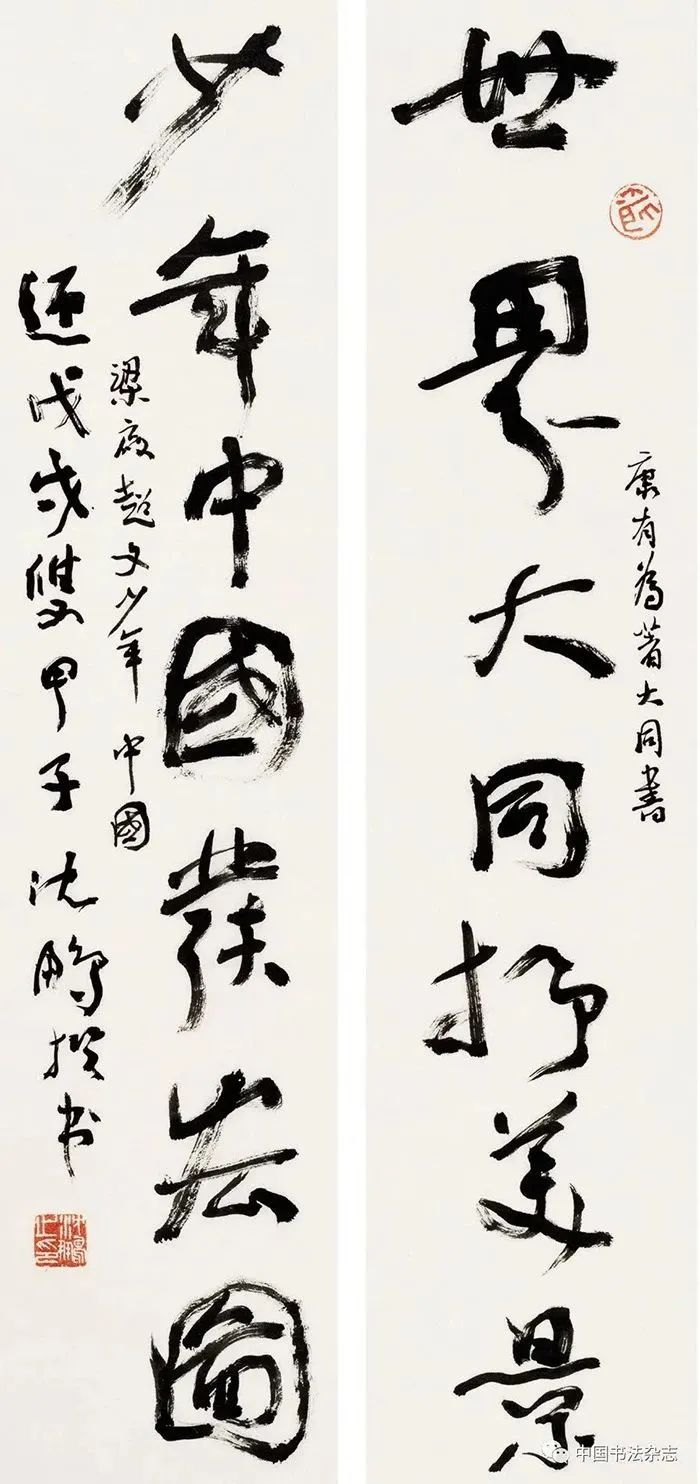 世界大同抒美景
康有為著大同書
少年中國發宏圖
梁啟超文少年中國
戊戌雙甲子沈鵬撰书
沈鵬之印
中国书法杂志